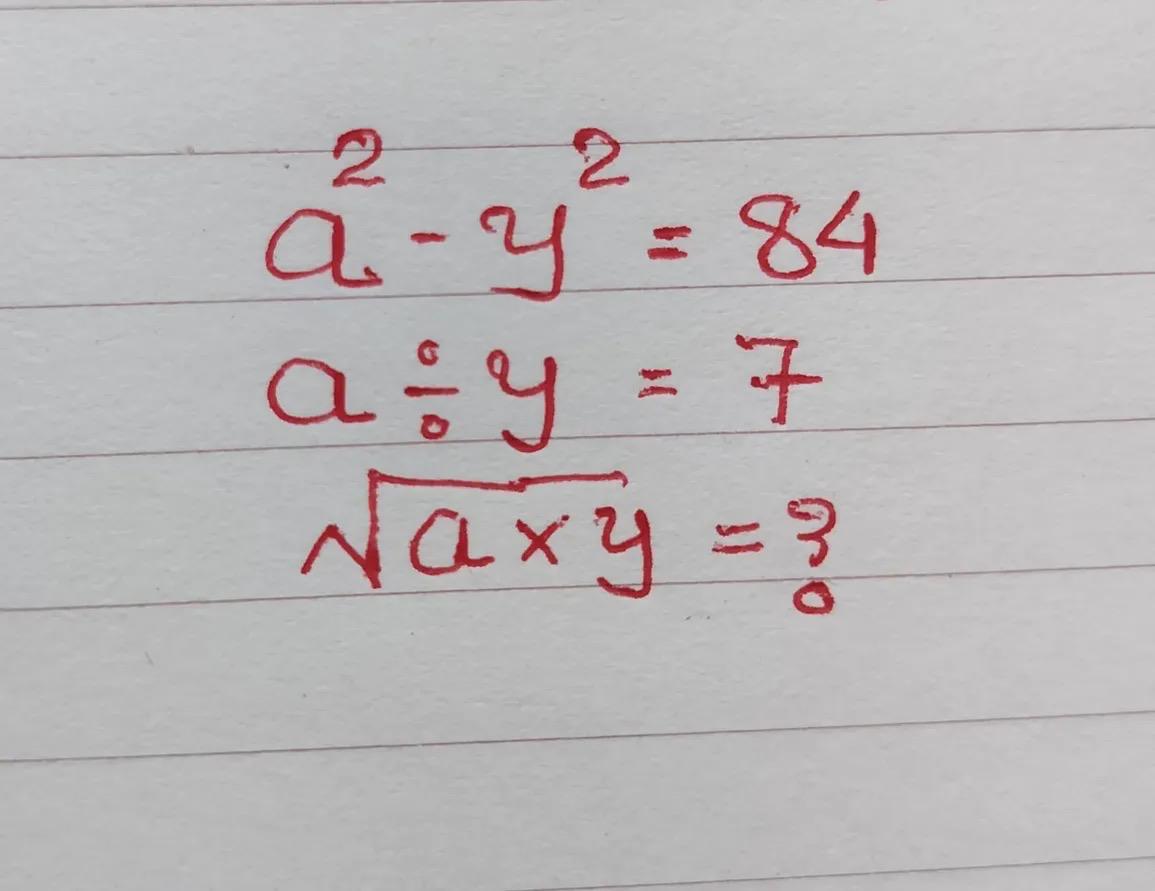 a² - y² = 84
a ÷ y = 7
√(a × y) = ?